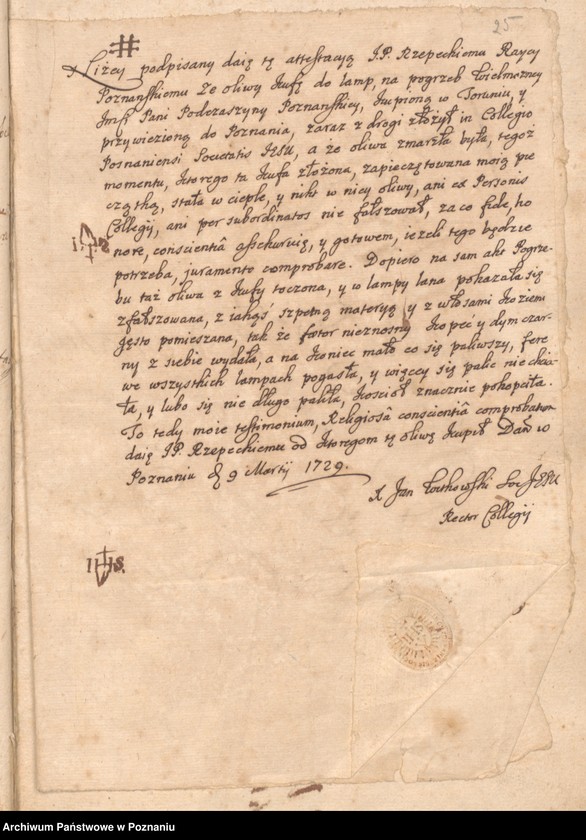 25
Niżey podpisany daię tę attestacyą J.P. Rzepeckiemu Raycy
Poznańskiemu że oliwy kufę do lamp, na pogrzeb Wielmożney
Imści Pani Podczaszyny Poznańskiey, kupioną w Toruniu, y
przywiezioną do Poznania, zaraz z drogi złożył in Collegio
Posnaniensi Societatis IESU, a że oliwa zmarzła była, tegoż
momentu, ktorego ta kufa złożona, zapieczętowana moią pie
czątką, stała w cieple, y nikt w niey oliwy, ani ex Personis
Collegij, ani per subordinatos nie fałszował, za co fide, ho
nore, conscientiâ y gotowem, ieżeli tego będzie
potrzeba, juramento comprobare. Dopiero na sam akt Pogrze-
bu taż oliwa z kufy toczona, y w lampy lana pokazała się
zfałszowana, z iakąś szpetną materyą y z włosami koziemi
gęsto pomieszana, tak że fœtor nieznosny kopeć y dym czar-
ny z siebie wydała, a na koniec mało co się paliwszy, fere
we wszystkich lampach pogasła, y więcey się palić nie chcia-
ła, y lubo się nie długo paliła, kosciół znacznie pokopciła.
To tedy moie testimonium, Religiosâ conscientiâ comprobatum
daię J.P. Rzepeckiemu od ktoregom tę oliwę kupił Dań w
Poznaniu d 9 Martij 1729.
X Jan Soc JESU
Rector Collegij
IHS
IHS.
Archiwum Państwowe w Poznaniu